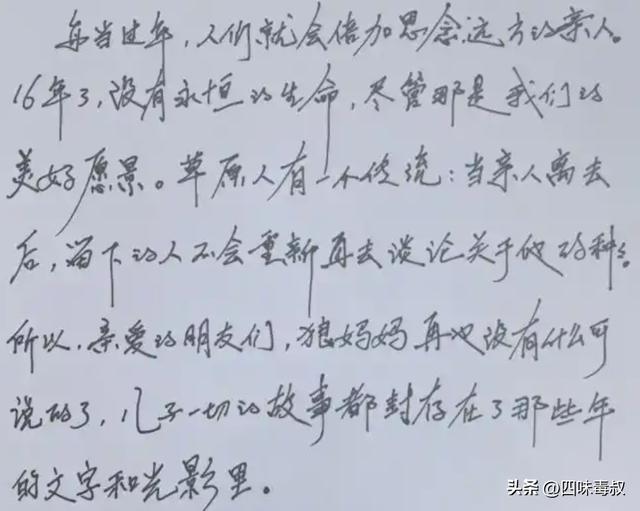 每当过年，人们就会倍加思念远方的亲人。
16年了，没有永恒的生命，尽管那是我们的
美好愿景。草原人有一个传统：当亲人离去
后，留下的人不会重新再去谈论关于他的种々。
所以，亲爱的朋友们，狼妈妈再也没有什么可
说的了，儿子一切的故事都封存在了那些年
的文字和光影里。
头条 @四味毒叔